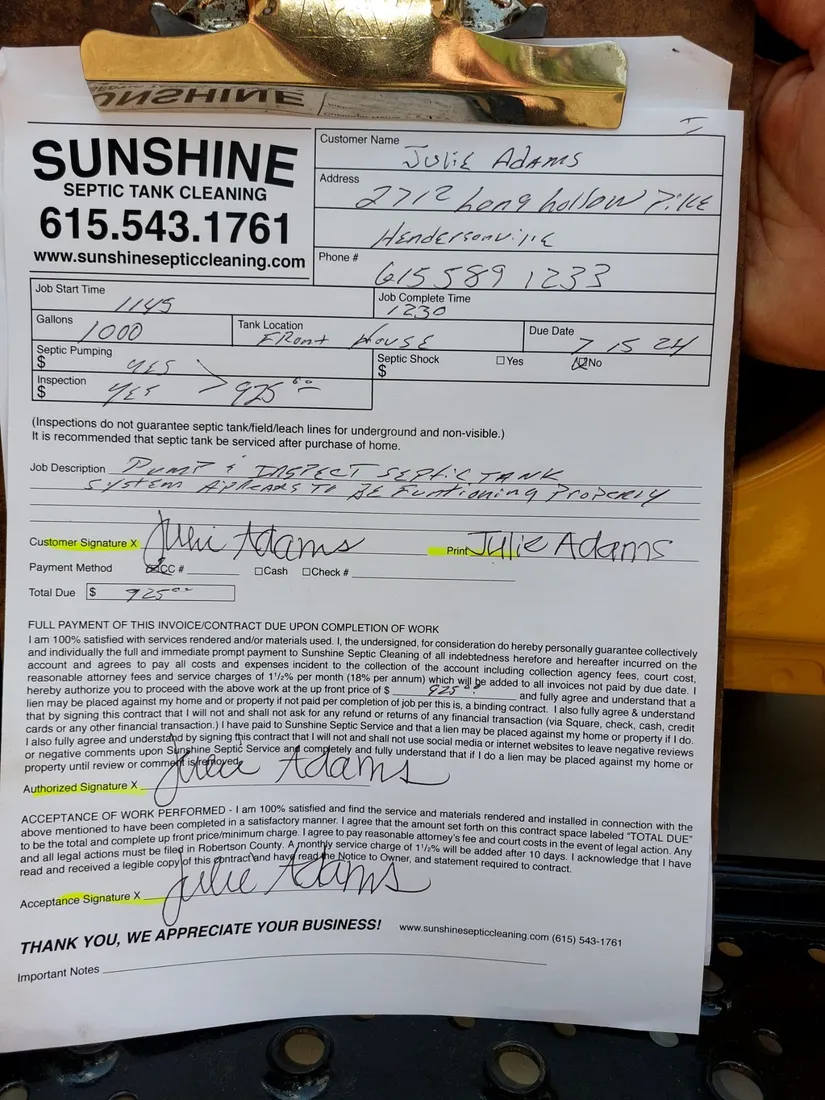 SUNSHINE
SUNSHINE
SEPTIC TANK CLEANING
615.543.1761
www.sunshinesepticcleaning.com
Customer Name Julie Adams
Address 2712 Long hollow Pike
Hendersonville
Phone # 615 589 1233
Job Start Time 1145
Job Complete Time 1230
Gallons 1000
Tank Location Front House
Due Date 7 15 24
Septic Pumping $ YES
Septic Shock $ Yes No
Inspection $ YES > 925.00
(Inspections do not guarantee septic tank/field/leach lines for underground and non-visible.)
It is recommended that septic tank be serviced after purchase of home.
Job Description Pump & Inspect Septic Tank
System Appears To Be Funtioning Properly
Customer Signature X Julie Adams Print Julie Adams
Payment Method CC # Cash Check #
Total Due $ 925.00
FULL PAYMENT OF THIS INVOICE/CONTRACT DUE UPON COMPLETION OF WORK
I am 100% satisfied with services rendered and/or materials used. I, the undersigned, for consideration do hereby personally guarantee collectively
and individually the full and immediate prompt payment to Sunshine Septic Cleaning of all indebtedness herefore and hereafter incurred on the
account and agrees to pay all costs and expenses incident to the collection of the account including collection agency fees, court cost,
reasonable attorney fees and service charges of 1 1/2% per month (18% per annum) which will be added to all invoices not paid by due date. I
hereby authorize you to proceed with the above work at the up front price of $ 925.00 and fully agree and understand that a
lien may be placed against my home and or property if not paid per completion of job per this is, a binding contract. I also fully agree & understand
that by signing this contract that I will not and shall not ask for any refund or returns of any financial transaction (via Square, check, cash, credit
cards or any other financial transaction.) I have paid to Sunshine Septic Service and that a lien may be placed against my home or property if I do.
I also fully agree and understand by signing this contract that I will not and shall not use social media or internet websites to leave negative reviews
or negative comments upon Sunshine Septic Service and completely and fully understand that if I do a lien may be placed against my home or
property until review or comment is removed.
Authorized Signature X Julie Adams
ACCEPTANCE OF WORK PERFORMED - I am 100% satisfied and find the service and materials rendered and installed in connection with the
above mentioned to have been completed in a satisfactory manner. I agree that the amount set forth on this contract space labeled "TOTAL DUE"
to be the total and complete up front price/minimum charge. I agree to pay reasonable attorney's fee and court costs in the event of legal action. Any
and all legal actions must be filed in Robertson County. A monthly service charge of 1 1/2% will be added after 10 days. I acknowledge that I have
read and received a legible copy of this contract and have read the Notice to Owner, and statement required to contract.
Acceptance Signature X Julie Adams
THANK YOU, WE APPRECIATE YOUR BUSINESS! www.sunshinesepticcleaning.com (615) 543-1761
Important Notes